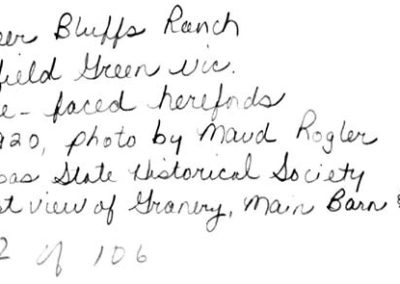 eer Bluffs Ranch
field Green vic.
e-faced herefords
920, photo by Maud Rogler
sas State Historical Society
st view of Granery, Main Barn &
2 of 106